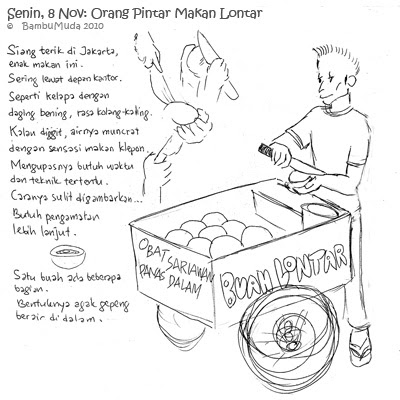 Senin, 8 Nov: Orang Pintar Makan Lontar
© BambuMuda 2010
Siang terik di Jakarta,
enak makan ini.
Sering lewat depan kantor.
Seperti kelapa dengan
daging bening, rasa kolang-kaling.
Kalau digigit, airnya muncrat
dengan sensasi makan klepon.
Mengupasnya butuh waktu
dan teknik tertentu.
Caranya sulit digambarkan...
Butuh pengamatan
lebih lanjut.
Satu buah ada beberapa
bagian.
Bentuknya agak gepeng
berair di dalam.
OBAT SARIAWAN
PANAS DALAM
BUAH LONTAR